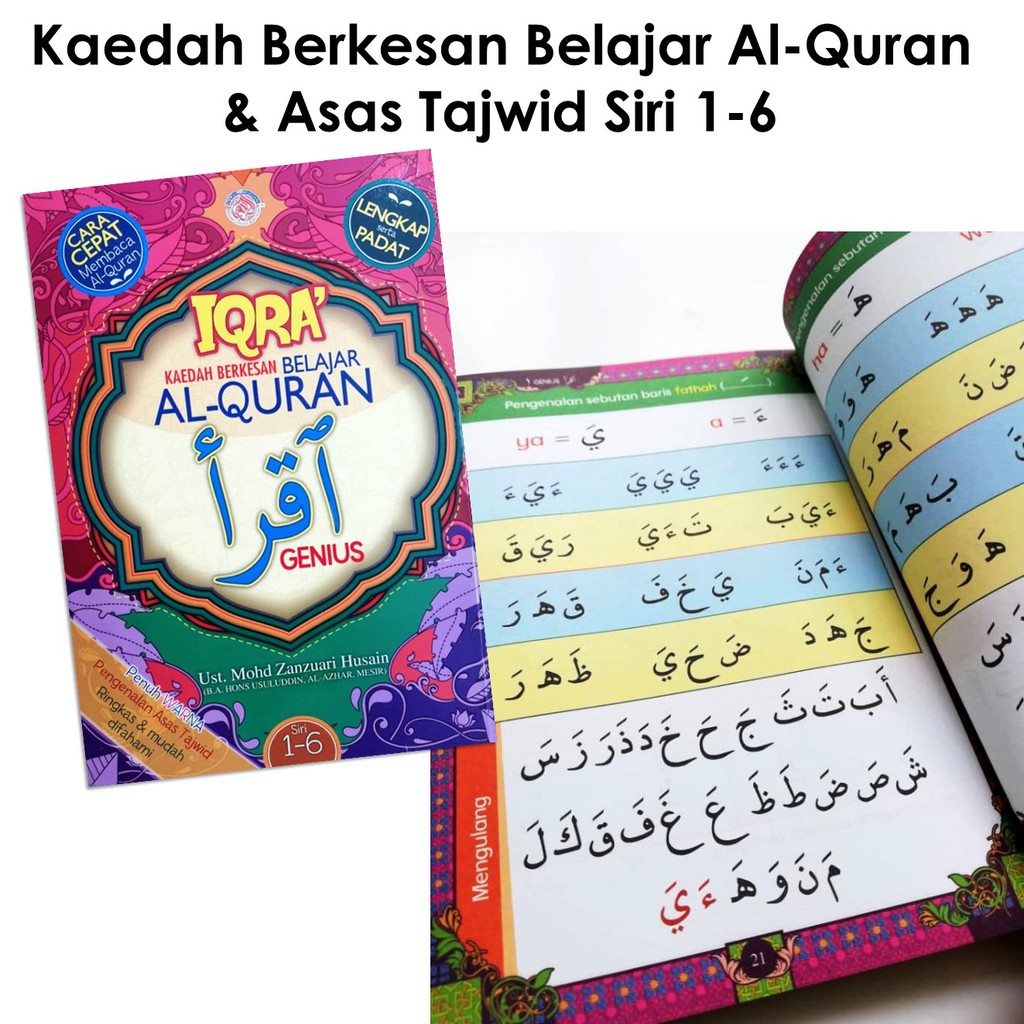 Kaedah Berkesan Belajar Al-Quran
& Asas Tajwid Siri 1-6
CARA
CEPAT
Membaca
Al-Quran
LENGKAP
serta
PADAT
IQRA'
KAEDAH BERKESAN BELAJAR
AL-QURAN
ٱقْرأ
GENIUS
Ust. Mohd Zanzuari Husain
(B.A. HONS USULUDDIN, AL-AZHAR, MESIR)
Penuh WARNA
Pengenalan Asas Tajwid
Ringkas & mudah
difahami
Siri
1-6
GENIUS
Pengenalan sebutan baris fathah (ـَـ).
ya = يَ a = ءَ
ءَءَءَ يَ يَ يَ ءَ يَ ءَ
ءَ يَ بَ تَ ءَ يَ رَ يَ قَ
ءَ مَ نَ يَ خَ فَ قَ هَ رَ
جَ هَ دَ ضَ حَ يَ ظَ هَ رَ
Mengulang
أَ بَ تَ ثَ جَ حَ خَ دَ ذَ رَ زَ سَ
شَ صَ ضَ طَ ظَ عَ غَ فَ قَ كَ لَ
مَ نَ وَ هَ ءَ يَ
21
Pengenalan sebutan
ha = هَ
هَ هَ هَ
هَ وَ وَ
ضَ نَ
مَ هَ رَ
بَ هَ مَ
هَ وَ جَ